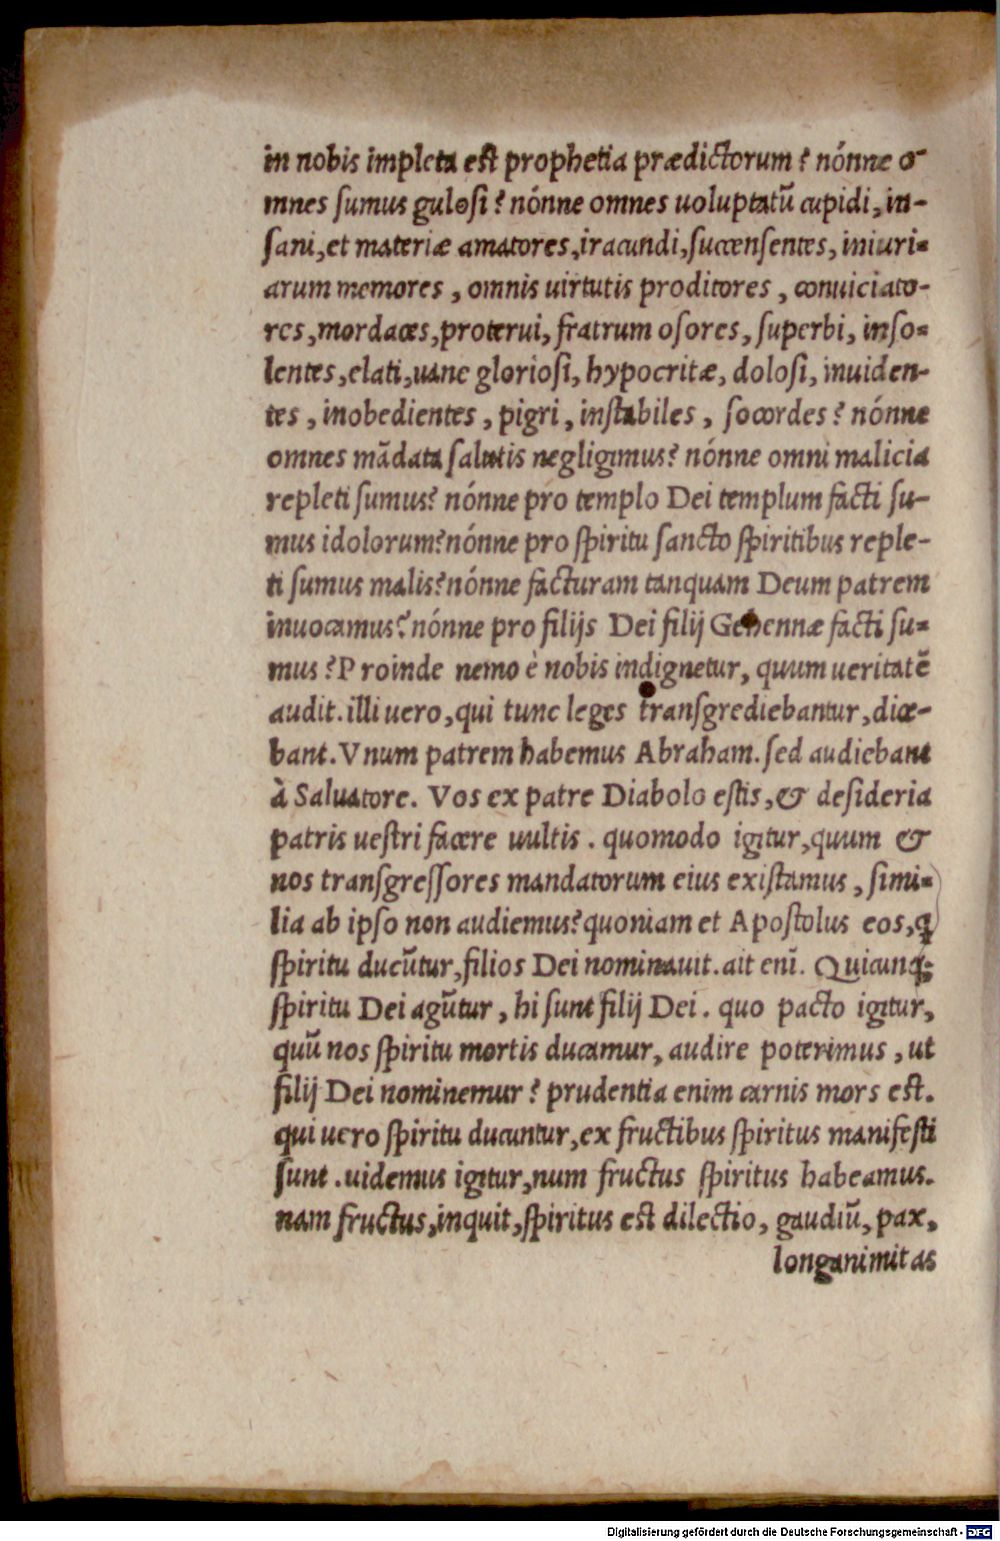 in nobis impleta est prophetia prædictorum? nónne o-
mnes sumus gulosi? nónne omnes uoluptatū cupidi, in-
sani, et materiæ amatores, iracundi, succensentes, iniuri-
arum memores, omnis uirtutis proditores, conuiciato-
res, mordaces, proterui, fratrum osores, superbi, inso-
lentes, elati, uane gloriosi, hypocritæ, dolosi, inuiden-
tes, inobedientes, pigri, instabiles, socordes? nónne
omnes mādata salutis negligimus? nónne omni malicia
repleti sumus? nónne pro templo Dei templum facti su-
mus idolorum? nónne pro spiritu sancto spiritibus reple-
ti sumus malis? nónne facturam tanquam Deum patrem
inuocamus? nónne pro filijs Dei filij Gehennæ facti su-
mus? Proinde nemo è nobis indignetur, quum ueritatē
audit. illi uero, qui tunc leges transgrediebantur, dice-
bant. Vnum patrem habemus Abraham. sed audiebant
à Saluatore. Vos ex patre Diabolo estis, & desideria
patris uestri facere uultis. quomodo igitur, quum &
nos transgressores mandatorum eius existamus, simi-
lia ab ipso non audiemus? quoniam et Apostolus eos, q̄
spiritu ducūtur, filios Dei nominauit. ait enī. Quicunq;
spiritu Dei agūtur, hi sunt filij Dei. quo pacto igitur,
quū nos spiritu mortis ducamur, audire poterimus, ut
filij Dei nominemur? prudentia enim carnis mors est.
qui uero spiritu ducuntur, ex fructibus spiritus manifesti
sunt. uidemus igitur, num fructus spiritus habeamus.
nam fructus, inquit, spiritus est dilectio, gaudiū, pax,
longanimitas
Digitalisierung gefördert durch die Deutsche Forschungsgemeinschaft - DFG